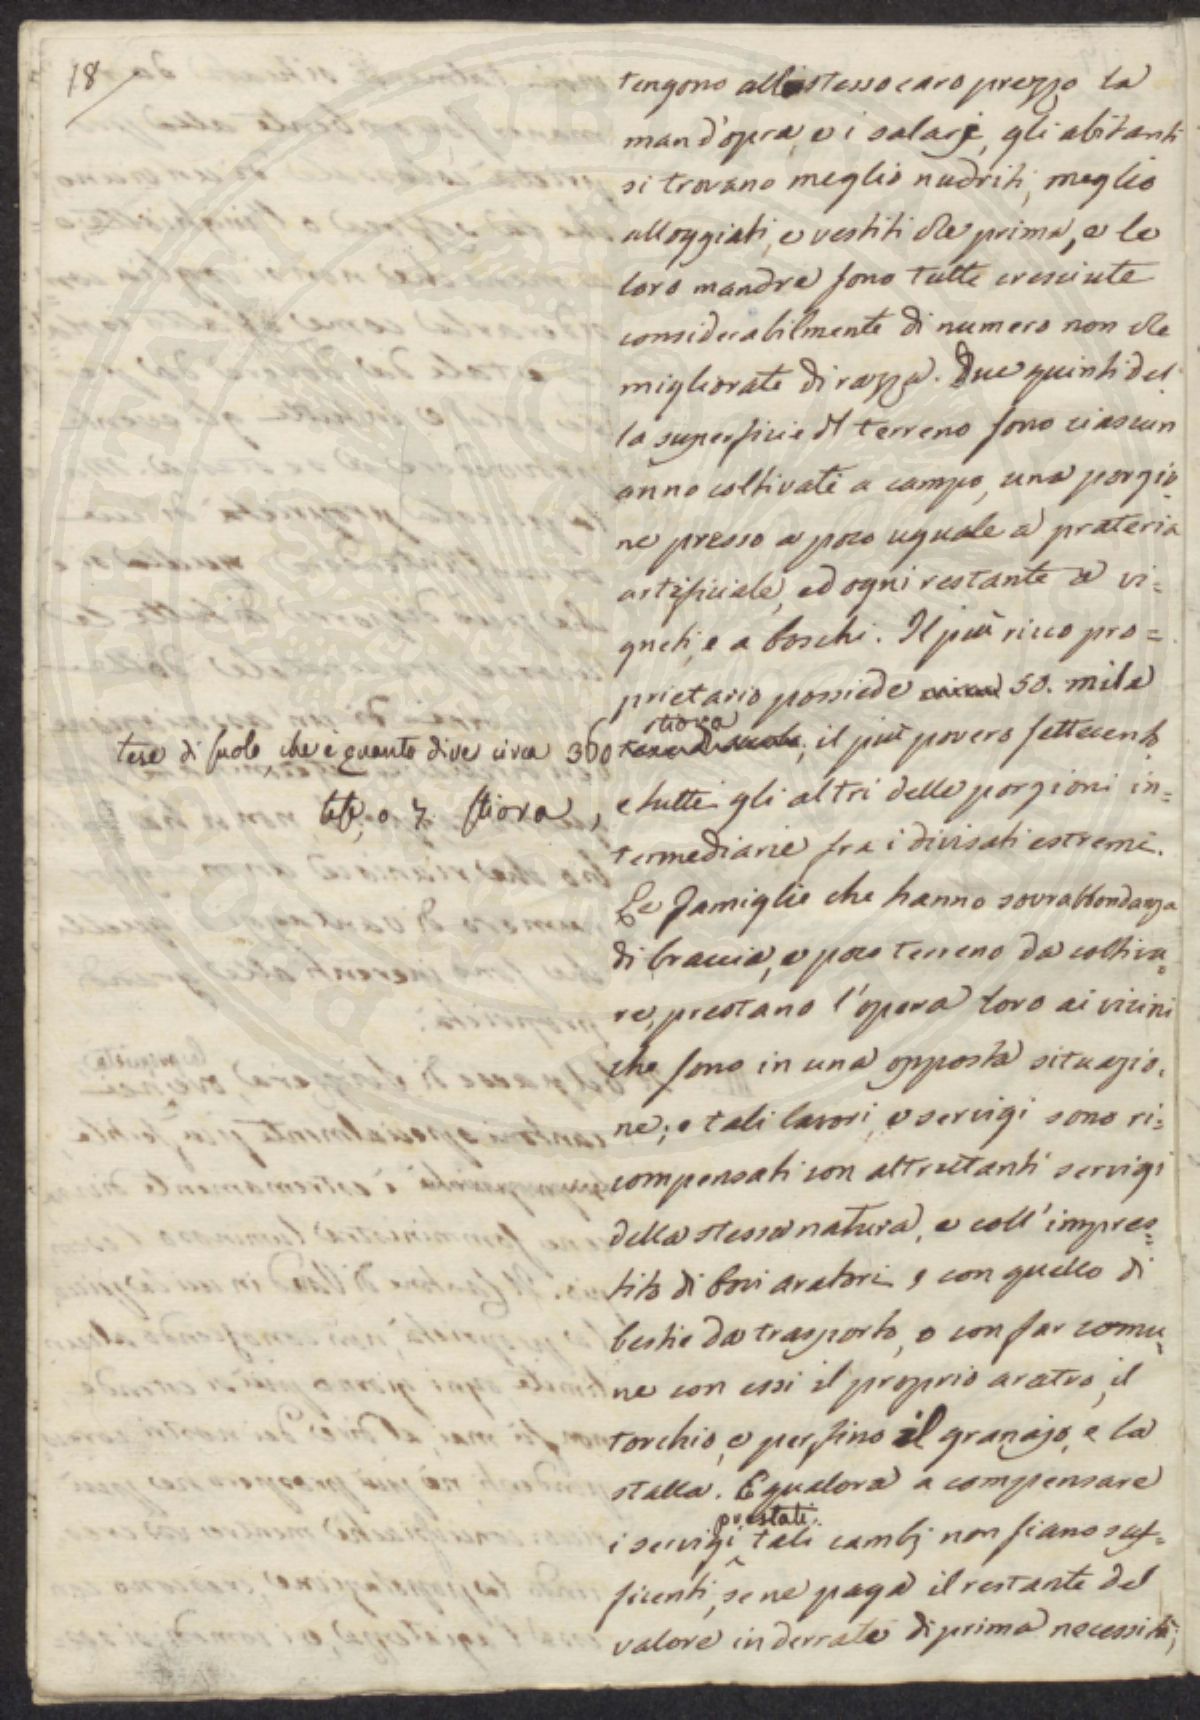 18
tengono allo stesso caro prezzo la
man d'opra, e i salarj, gli abitanti
si trovano meglio nudriti, meglio
alloggiati, e vestiti che prima, e le
loro mandre sono tutte cresciute
considerabilmente di numero non che
migliorate di razza. Due quinti del-
la superficie del terreno sono ciascun
anno coltivate a campo, una porzio-
ne presso a poco uguale a prateria
artificiale, ed ogni restante a vi=
gneti, e a boschi. Il più ricco pro=
prietario possiede circa 50. mila
stiora
tese di suolo, che è quanto dire circa 360
tese di suolo; il più povero settecento
tese, o 7. stiora,
e tutti gli altri delle porzioni in=
termediarie fra i divisati estremi.
Le famiglie che hanno sovrabbondanza
di braccia, e poco terreno da coltiva=
re, prestano l'opera loro ai vicini
che sono in una opposta situazio-
ne; e tali lavori, e servigi sono ri=
compensati con altrettanti servigi
della stessa natura, e coll'impres=
tito di bovi aratori, e con quello di
bestie da trasporto, o con far comu=
ne con essi il proprio aratro, il
torchio, e perfino il granajo, e la
stalla. E qualora a compensare
prestati
i servigi tali cambj non siano suf=
ficenti, se ne paga il restante del
valore in derrate di prima necessità;